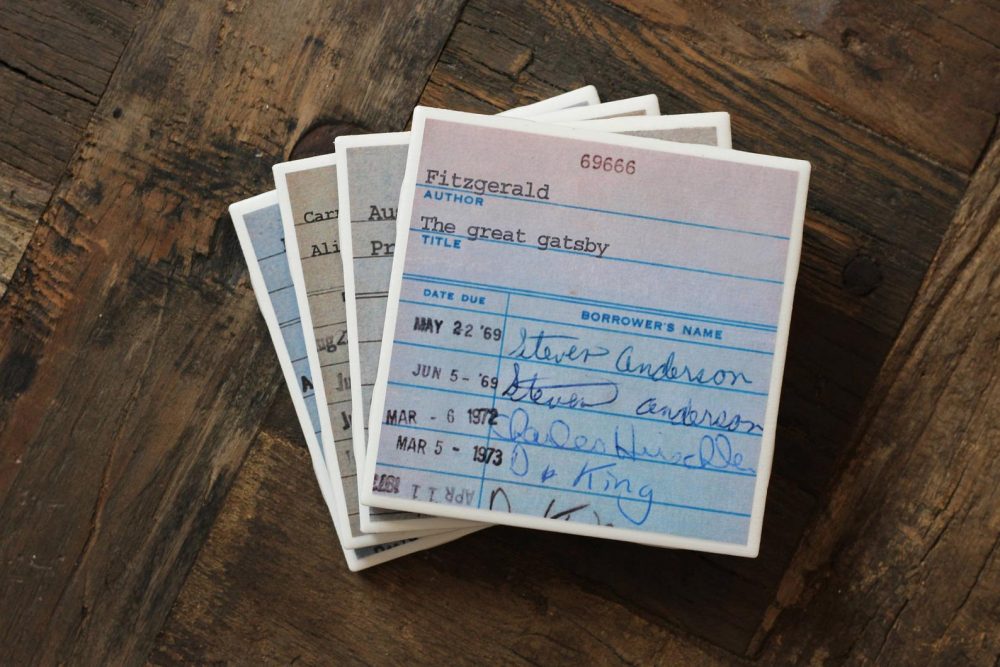 69666
Fitzgerald
AUTHOR
The great gatsby
TITLE
DATE DUE BORROWER'S NAME
MAY 22 '69 Steven Anderson
JUN 5 - '69 Steven Anderson
MAR - 6 1972 Charles
MAR 5 - 1973 D King
APR 11 D
Carr
Ali
Aus
Pr